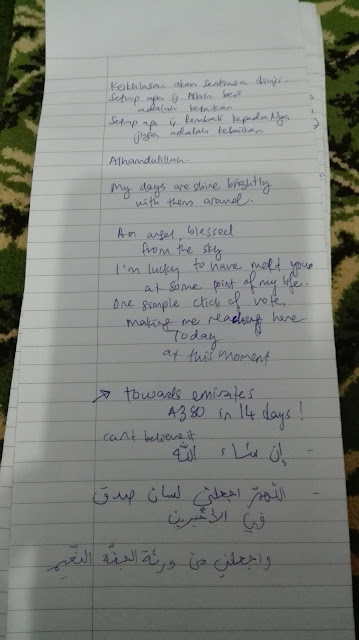 Keikhlasan akan sentiasa diuji.
Setiap apa yg Allah beri
adalah kebaikan
Setiap apa yg kembali kepadaNya
juga adalah kebaikan
Alhamdulillah.
My days are shine brightly
with them around.
An angel, blessed
from the sky
I'm lucky to have meld you
at some point of my life.
One simple click of vote,
making me reaching here.
Today
at this moment
→ towards emirates
A380 in 14 days!
can't believe it
- إن شاء الله
- اللهم اجعلني لسان صدق
في الآخرين
واجعلني من ورثة الجنة النعيم